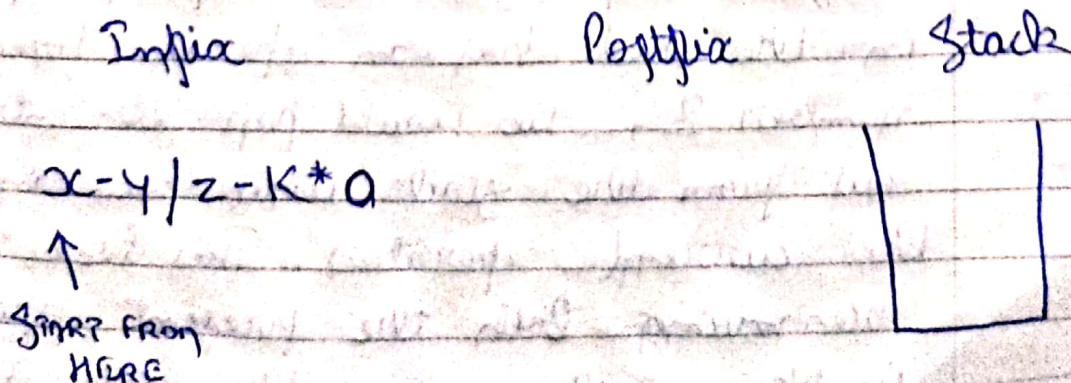 Infix Postfix Stack
x-y/z-K*a
START FROM
HERE